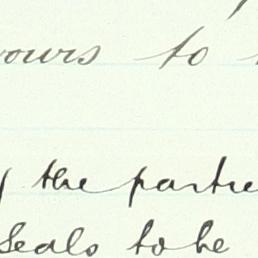 yours to
the partie
Seals to be